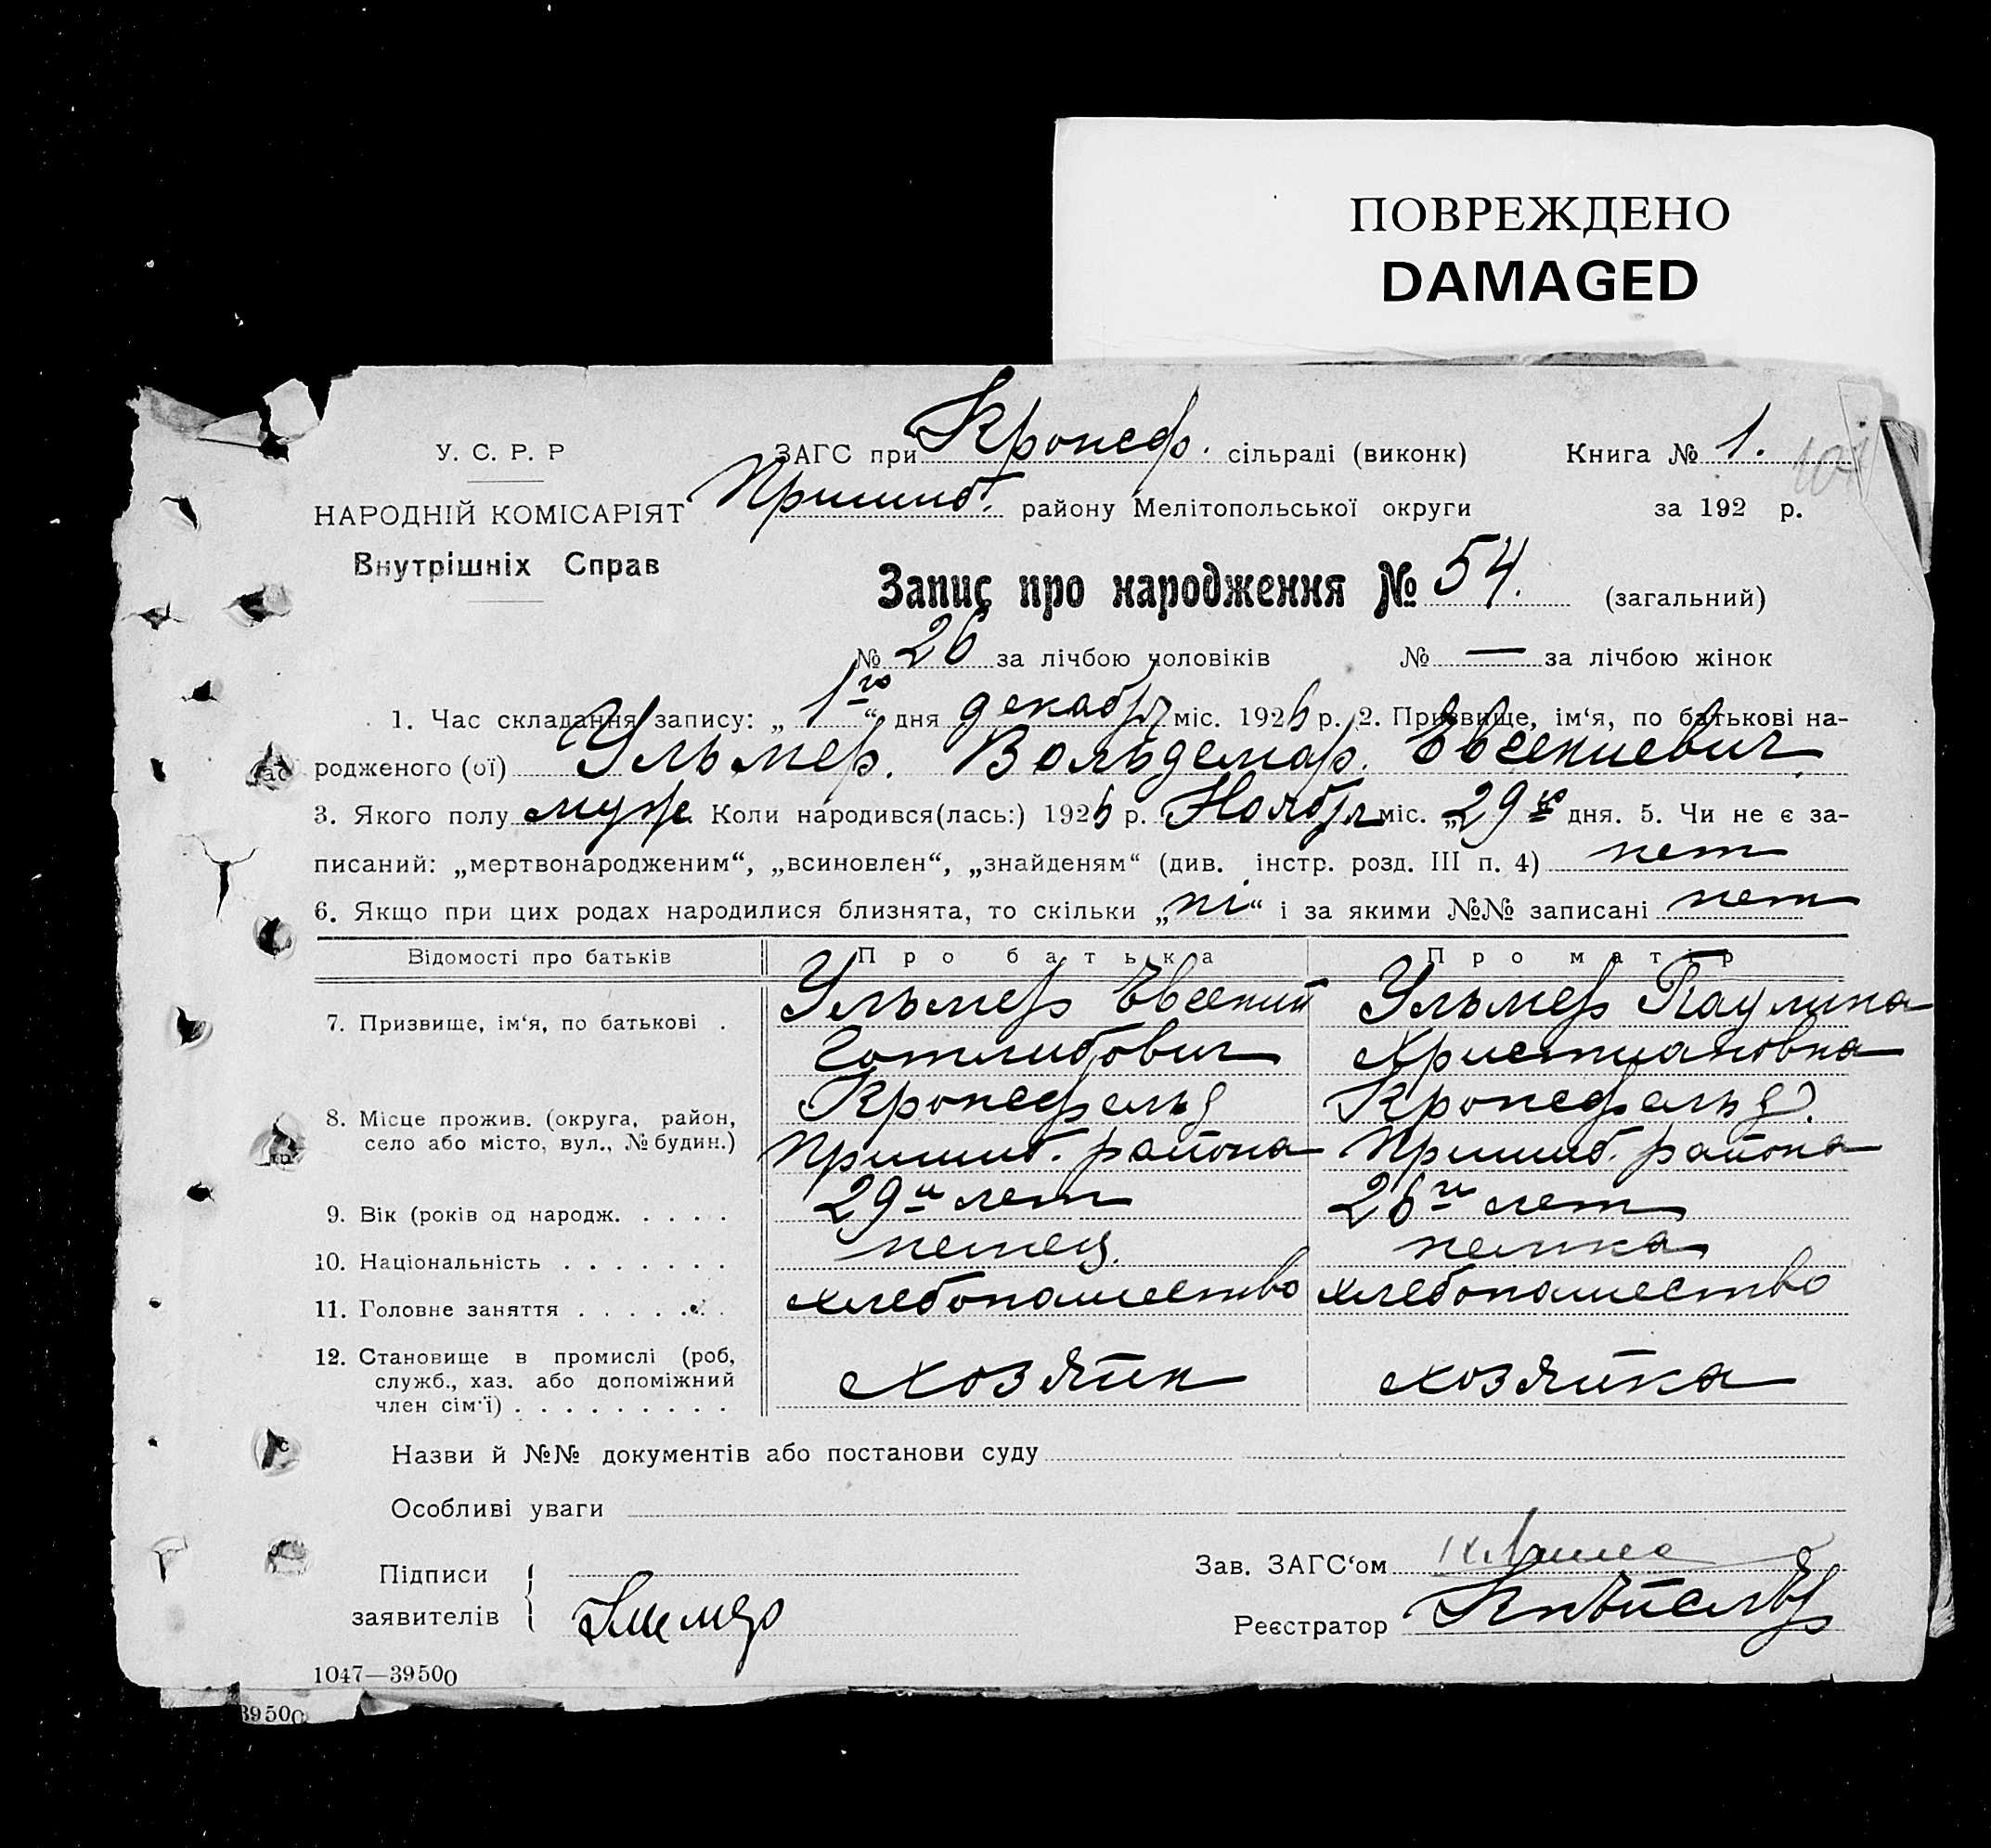 ПОВРЕЖДЕНО
DAMAGED
У. С. Р. Р
ЗАГС при Кронеф. сільраді (виконк)
Книга № 1.
НАРОДНІЙ КОМІСАРІЯТ
Пришиб. району Мелітопольської округи
за 192 р.
Внутрішніх Справ
Запис про народження № 54. (загальний)
№ 26 за лічбою чоловіків № — за лічбою жінок
1. Час складання запису: „ 1го “ дня декабря міс. 1926 р. 2. Призвище, ім‘я, по батькові на-
родженого (ої) Ульмер. Вольдемар. Евсекиевич.
3. Якого полу муж. Коли народився(лась:) 1926 р. Ноября міс. „29го дня. 5. Чи не є за-
писаний: „мертвонародженим“, „всиновлен“, „знайденям“ (див. інстр. розд. III п. 4) нет
6. Якщо при цих родах народилися близнята, то скільки „ні“ і за якими №№ записані нет
Відомості про батьків Про батька Про матір
7. Призвище, ім‘я, по батькові . Ульмер Евсекий Ульмер Паулина
Готлибович Христиановна
Кронефельд Кронефельд.
8. Місце прожив. (округа, район,
село або місто, вул., № будин.) Пришиб. района Пришиб. района
9. Вік (років од народж. . . . . 29и лет 26ти лет
10. Національність . . . . . . . немец. немка
11. Головне заняття . . . . . . . хлебопашество хлебопашество
12. Становище в промислі (роб,
служб., хаз. або допоміжний хозяйн хозяйка
член сім‘ї) . . . . . . . . .
Назви й №№ документів або постанови суду
Особливі уваги
Підписи
заявителів
Зав. ЗАГС‘ом
Реєстратор
1047—39500
39500